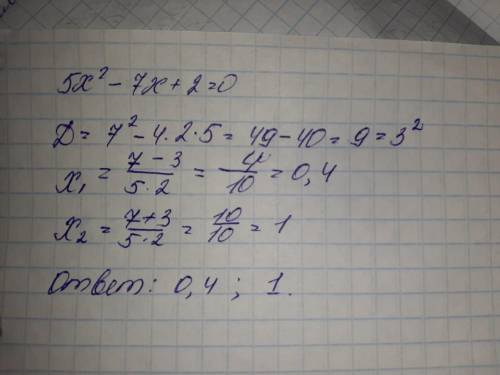 5x² - 7x + 2 = 0
D = 7² - 4·2·5 = 49 - 40 = 9 = 3²
x₁ = (7 - 3)/(5·2) = 4/10 = 0,4
x₂ = (7 + 3)/(5·2) = 10/10 = 1
Ответ: 0,4 ; 1.